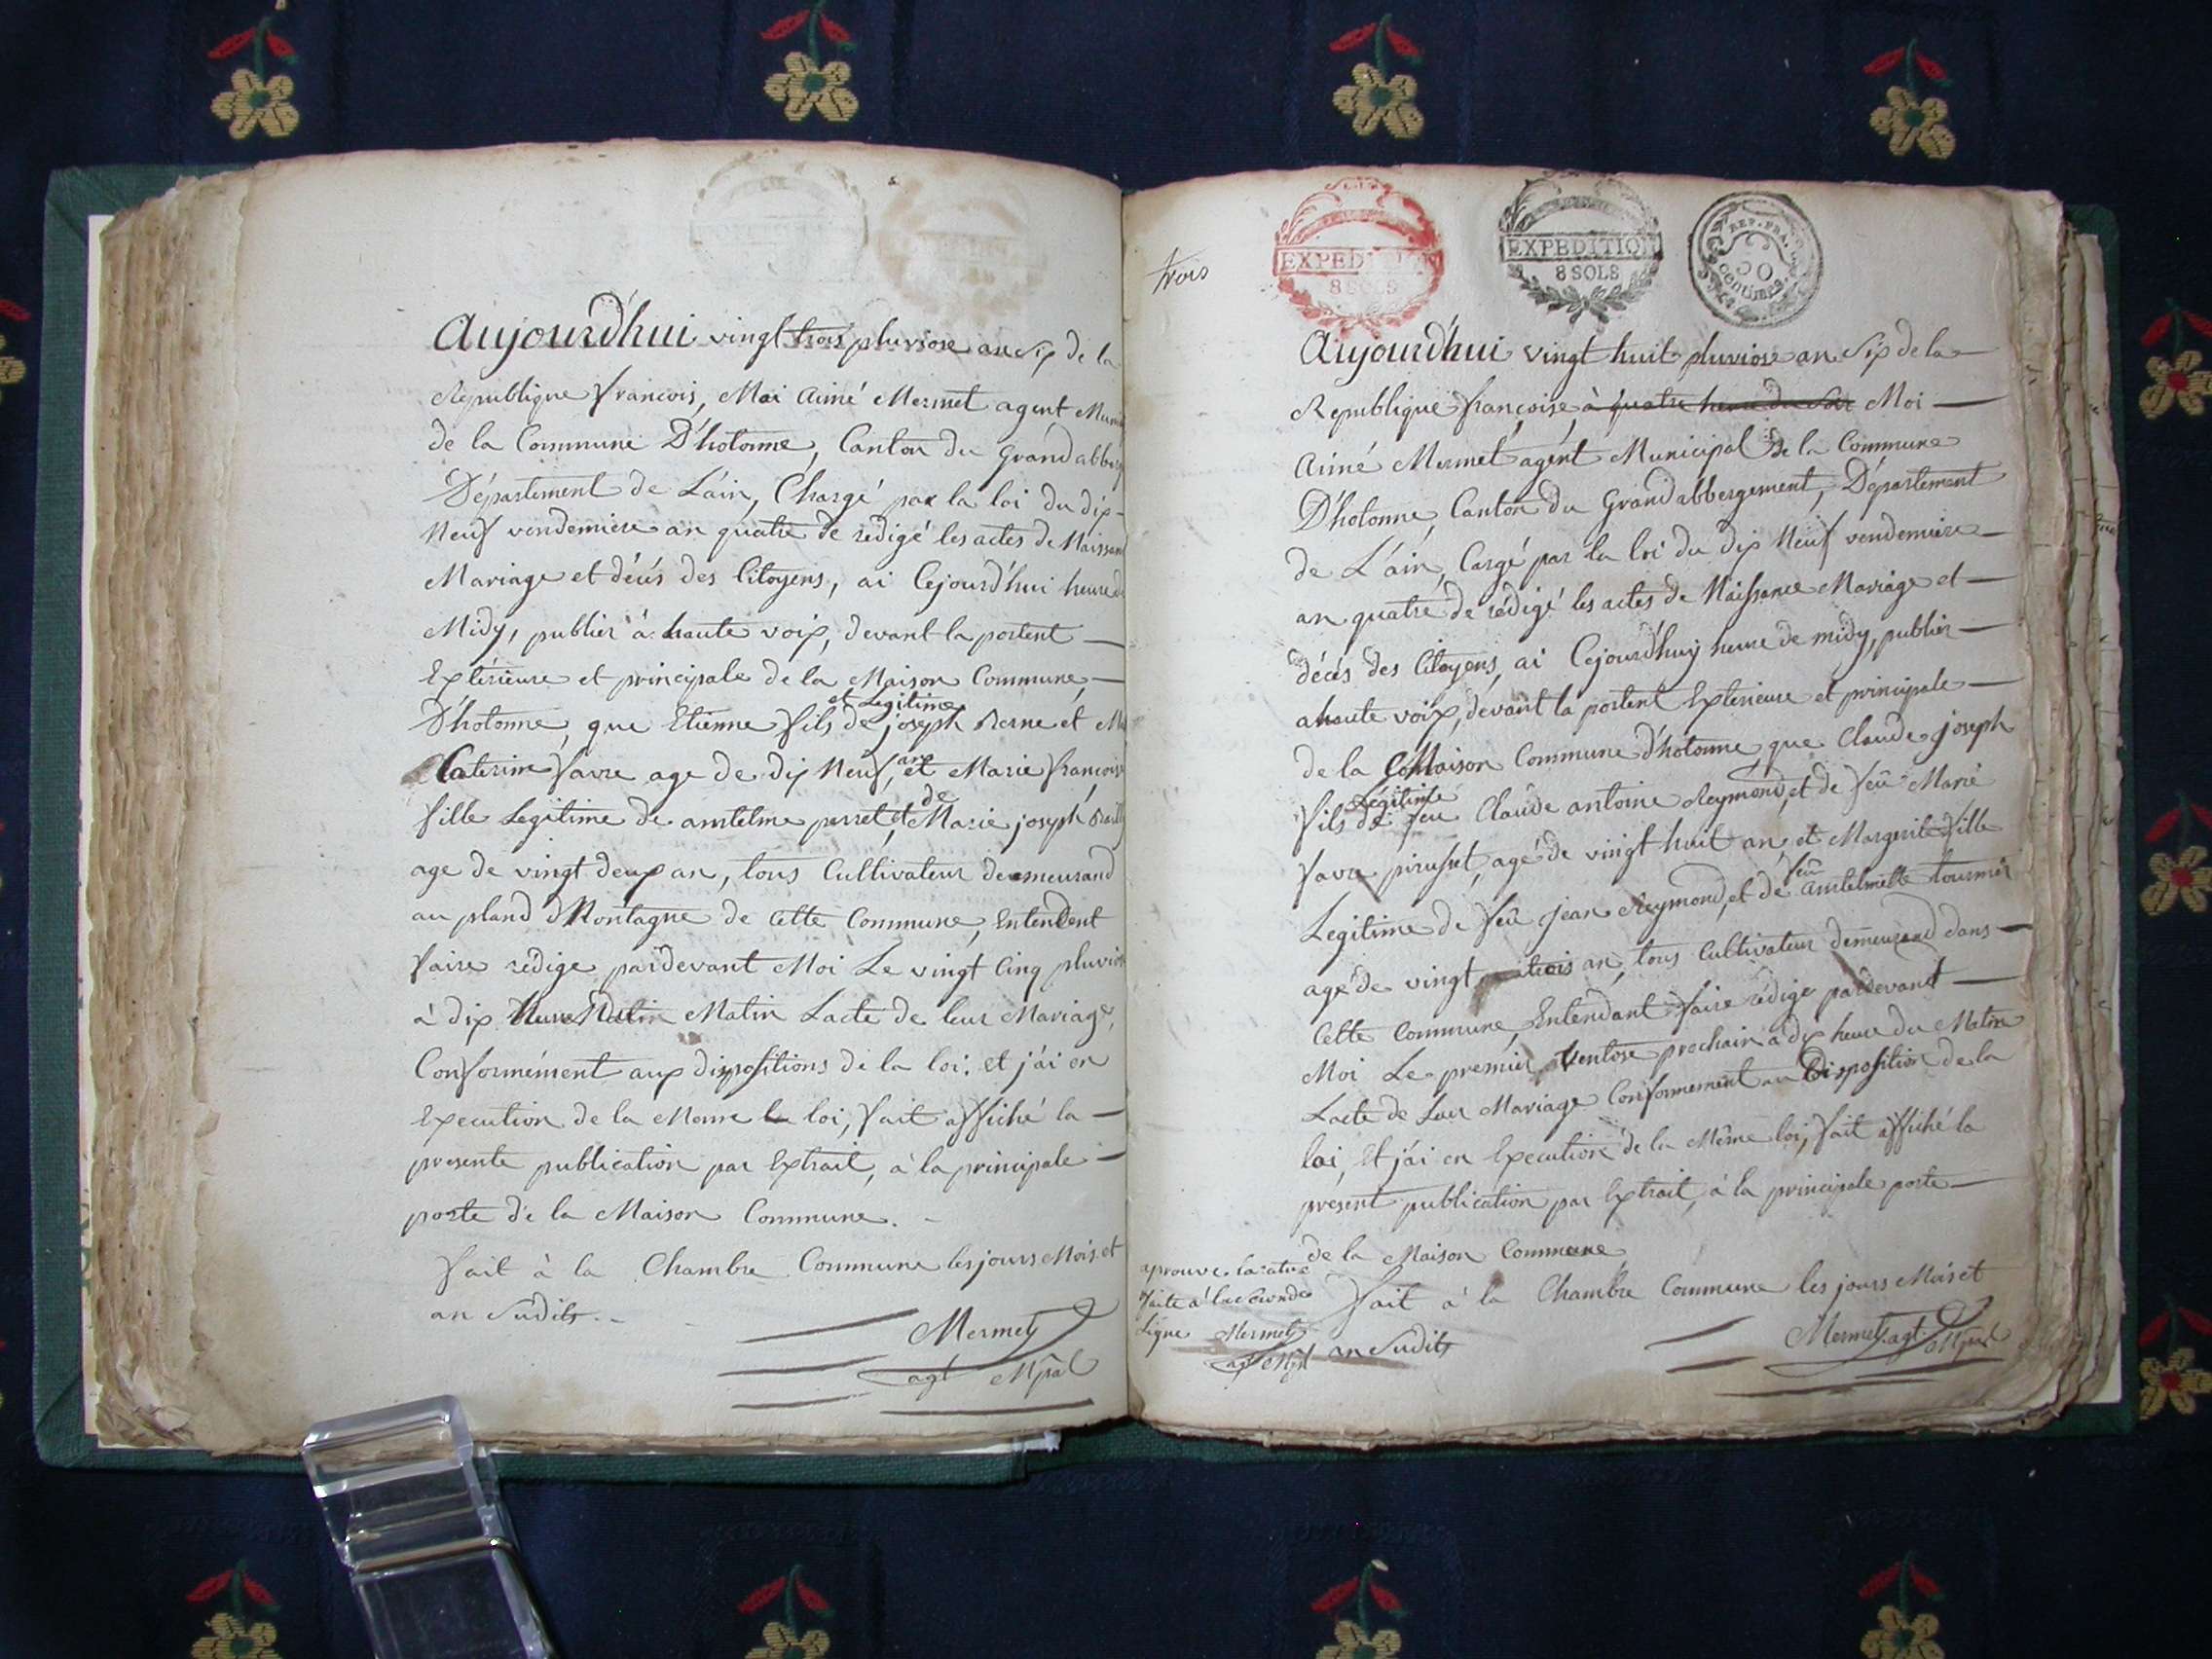 Aujourd'hui vingt trois pluviose an Six de la
Republique francois, Moi aimé Mermet agent
de la Commune D'hotonne, Canton du Grand
Département de L'ain, Chargé par la loi du dix-
Neuf vendemiere an quatre de redigé les actes de
Mariage et décés des Citoyens, ai Cejourd'hui heure
Midy, publier à haute voix, devant la portent
Extérieure et principale de la Maison Commune,
et Legitime
D'hotonne, que Etienne fils de joseph Berne et
Caterine favre age de dix Neuf an, et Marie françoise
fille Legitime de amtelme perret, et de Marie joseph
age de vingt deux an, tous Cultivateur demeurand
au pland d Montagne de Cette Commune, Entendent
faire redige pardevant Moi Le vingt Cinq
à dix heure Matin Matin Lacte de leur Mariage,
Conformément aux dispositions de la loi; et j'ai en
Execution de la Meme loi, fait affiché la
presente publication par Extrait, à la principale
porte de la Maison Commune.
fait à la Chambre Commune les jours Mois et
an Sudits.
Mermet
agt Mpal
trois
EXPEDITION
8 SOLS
EXPEDITION
8 SOLS
REP. FRA.
50
centimes
Aujourd'hui vingt huit pluviose an Six de la
Republique françoise, à quatre heure du Soir Moi
aimé Mermet agent Municipal de la Commune
D'hotonne, Canton du Grand abbergement, Département
de L'ain, Cargé par la loi du dix Neuf vendemiere
an quatre de rédigé les actes de Naissance Mariage et
décés des Citoyens, ai Cejourd'huy heure de midy, publier
a haute voix, devant la portent Exterieure et principale
de la Maison Commune d'hotonne, que Claude joseph
Légitime
fils de feu Claude antoine Reymond, et de feue Marie
favre, agé de vingt huit an, et Marguerite fille
Legitime de feu jean Reymond, et de feue amtelmette tournier
agé de vingt trois an, tous Cultivateur demeurand dans
Cette Commune, Entendant faire rédige pardevant
Moi Le premier Ventose prochain à dix heure du Matin
Lacte de Leur Mariage Conformement au Disposition de la
loi, Et j'ai en Execution de la Même loi, fait affiché la
present publication par Extrait, à la principale porte
de la Maison Commune
fait à la Chambre Commune les jours Mois et
an Sudits
Mermet agt Mpal
aprouve la rature
faite à la Seconde
Ligne Mermet
agt Mpl